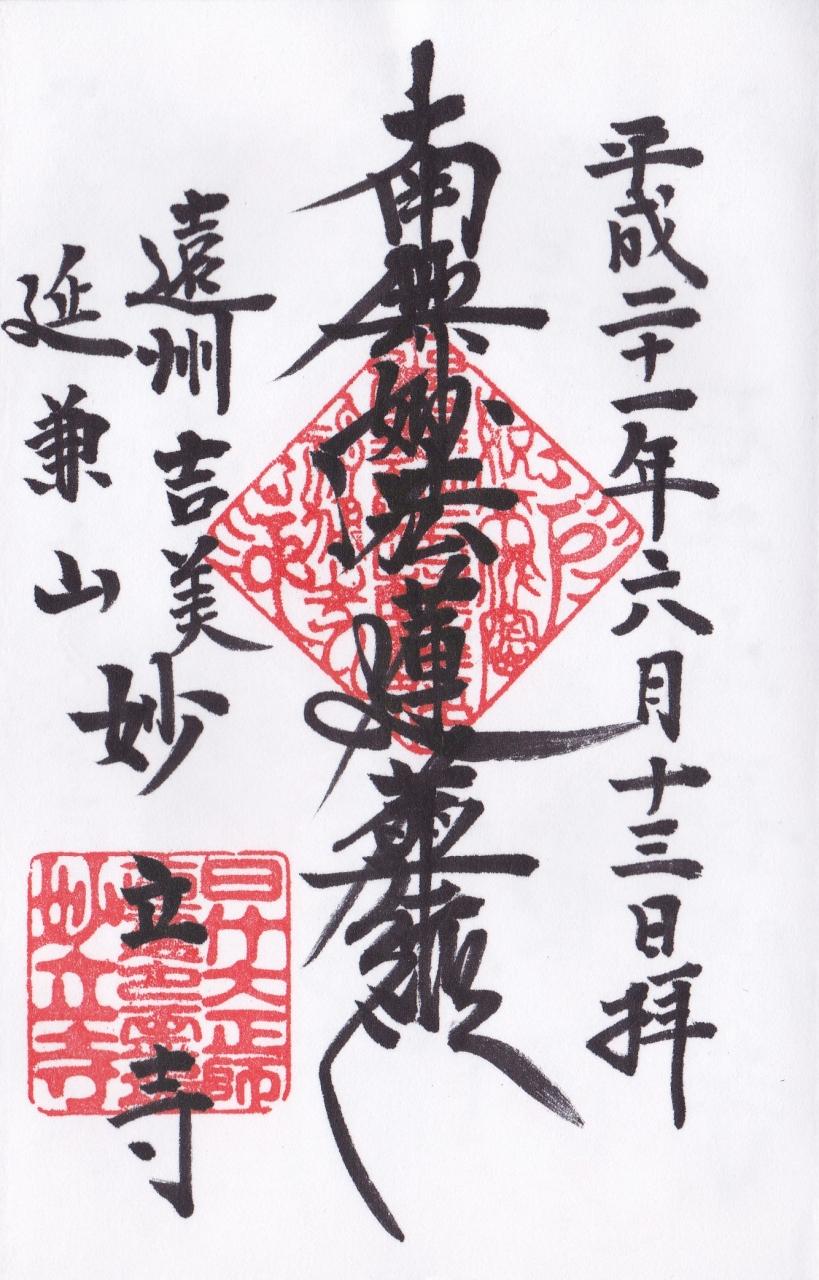 平成二十一年六月十三日拝
南無妙法蓮華経
遠州吉美
延兼山
妙立寺
日什大正師
妙立寺